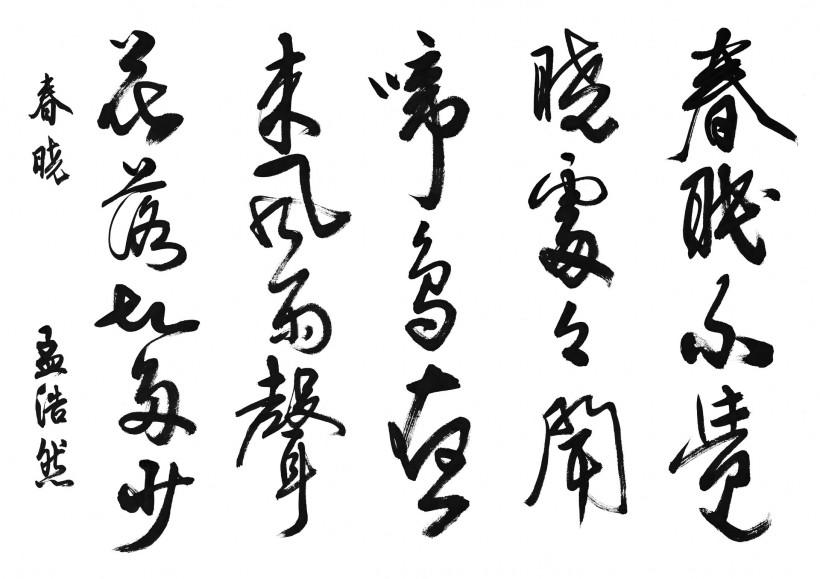 春眠不覺
晓處々聞
啼鳥夜
来風雨聲
花落知多少
春晓 孟浩然